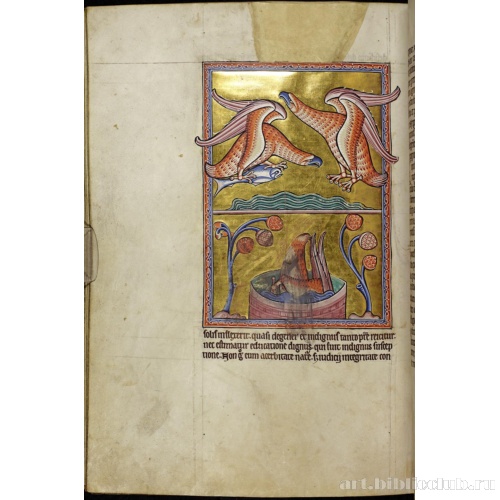 solis inflexerit. quasi degener et indignus tanto patre reicitur
nec estimatur educatione dignus. qui fuit indignus suscep
tione. Non eum acerbitate nature. sed iudicii integritate con
art.biblioclub.ru